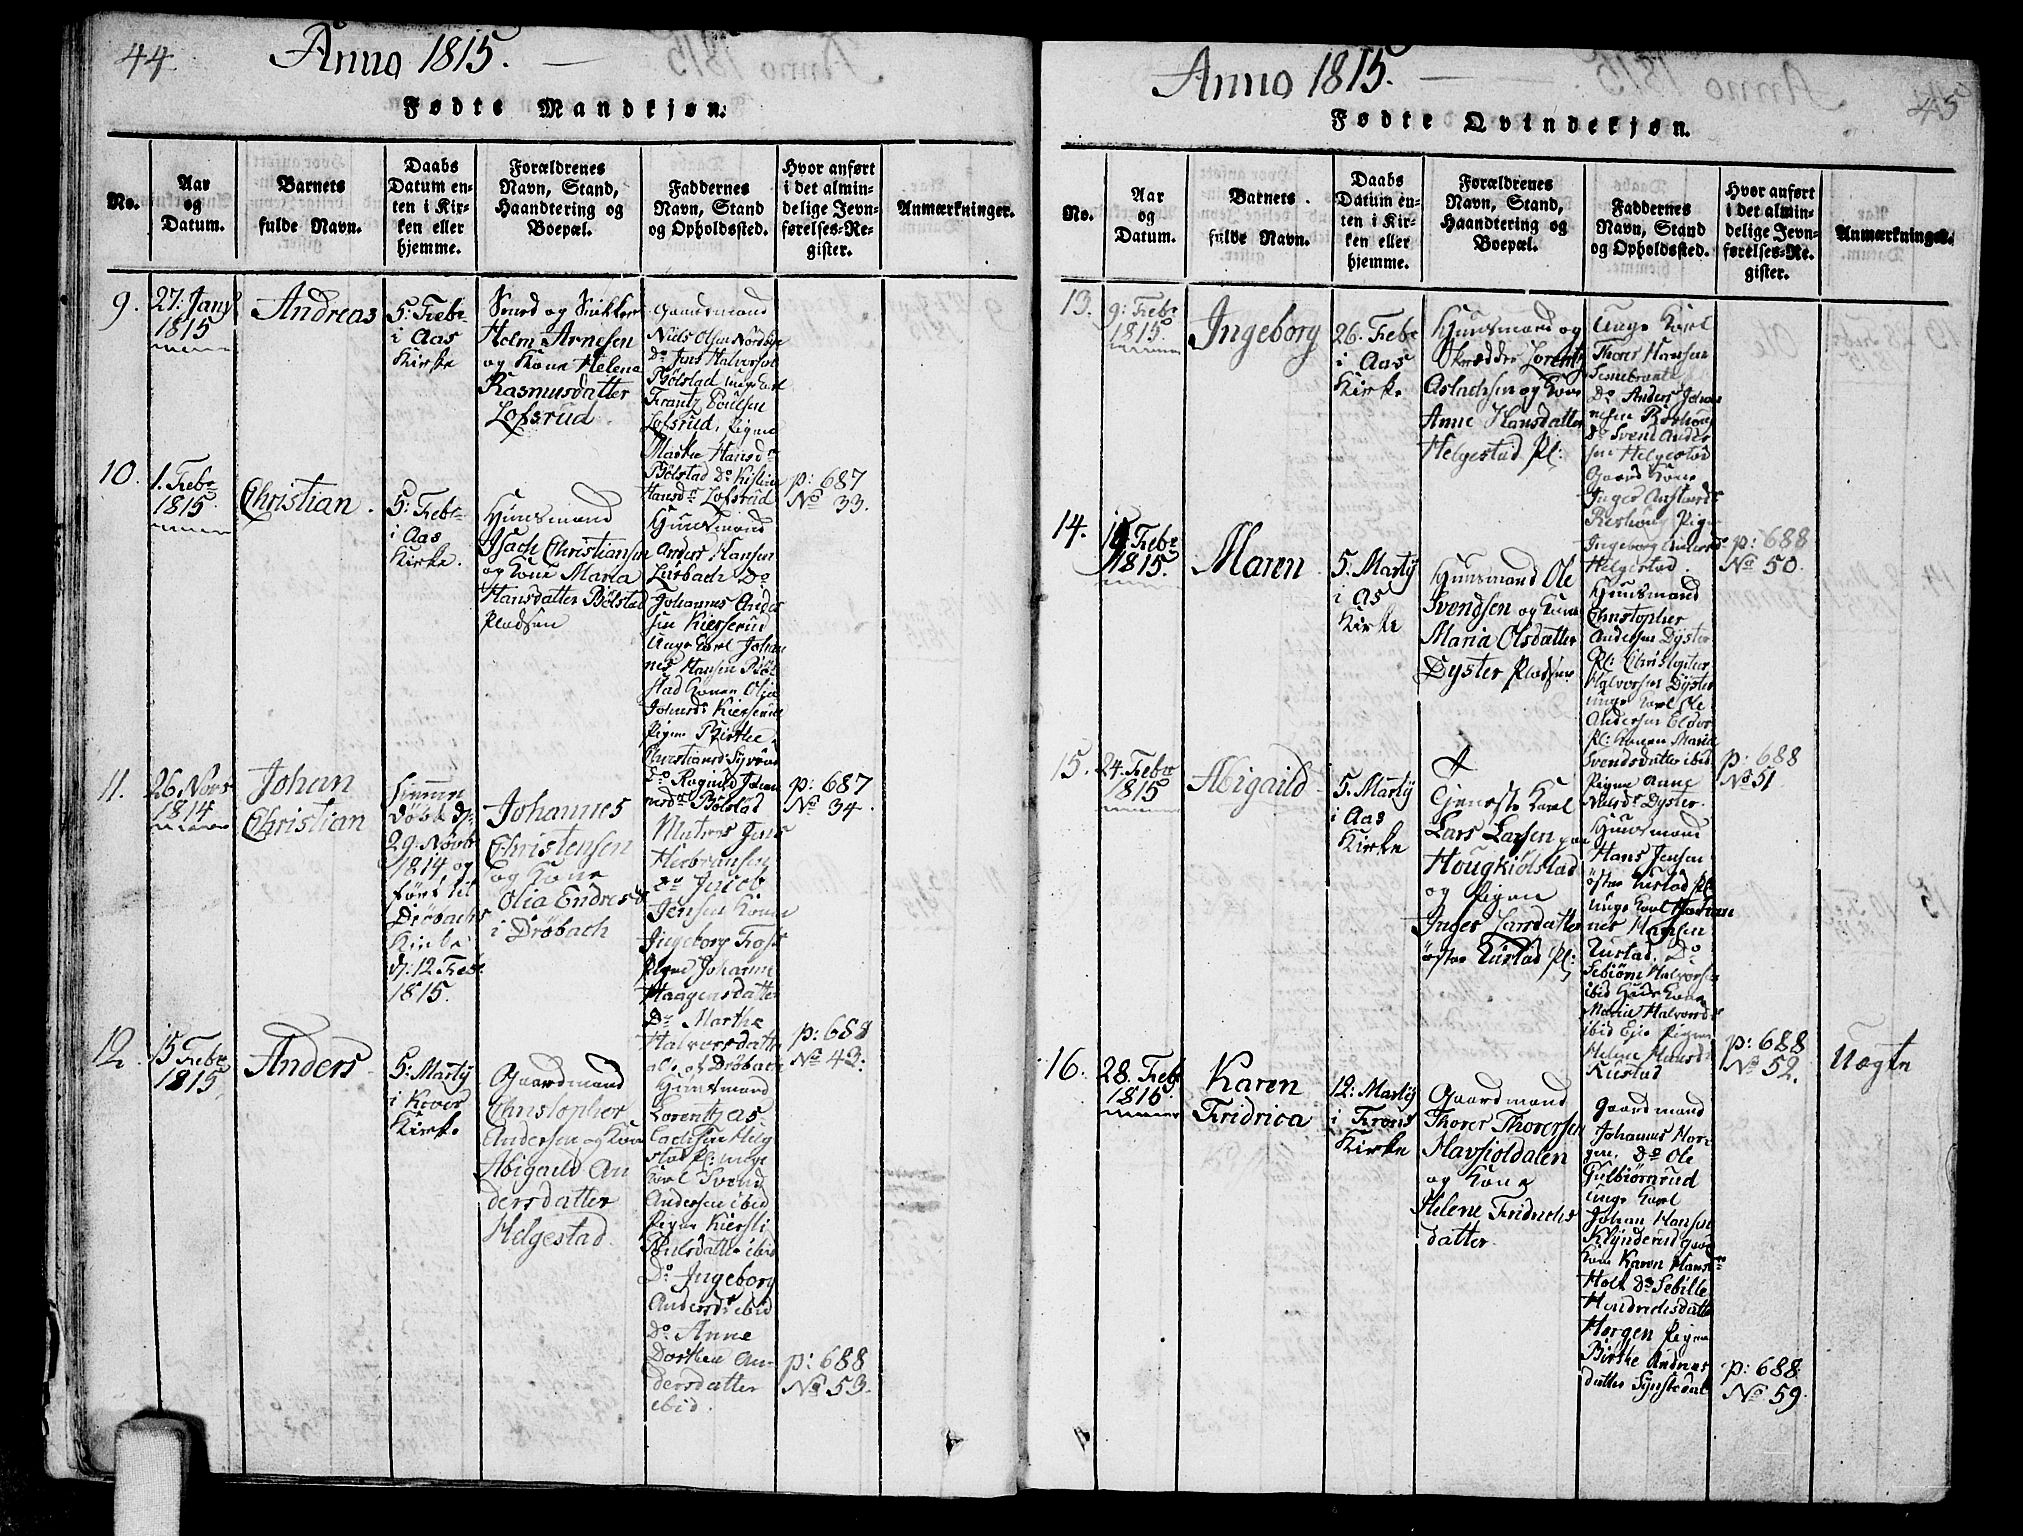 44. Anno 1815.
Fødte Mandkjøn.
No.
Aar
og
Datum.
Barnets
fulde Navn.
Daabs
Datum en-
ten i Kir-
ken eller
hjemme.
Forældrenes
Navn, Stand,
Haandtering og
Boepæl.
Faddernes
Navn, Stand
og Opholdssted.
Hvor anført
i det almin-
delige Jevn-
førelses-Re-
gister.
Anmærkninger.
9.
27: Janr
1815
Andreas
5: Febr
i Aas
Kirke
Smed og Snikker
Holm Arnesen
og Kone Helena
Rasmusdatter
Lofsrud
Gaardmand
Niels Olsen Nordbye
Do Jens Halvorsen
Bölstad unge Karl
Frantz Poulsen
Lofsrud, Pigen
Marthe Hansdr
Bölstad Do Kistine
Hansdr Lofsrud
p: 687
No 33.
10.
1. Febr
1815.
Christian.
5: Febr
i Aas
Kirke.
Huusmand
Isach Christiansen
og Kone Maria
Hansdatter Bölstad
Pladsen
Huusmand
Anders Hansen
Do
Johannes Ander
sen Kierserud
unge Karl Johan
nes Hansen Böl
stad Konen Olia
Johansdr Kierserud
Pigen Birthe
Christiansd
Do Ragnild Johan
nesdr Bölstad
p: 687
No 34.
11.
26 Novr
1814
Johan
Christian
hjemme
Döbt d:
29. Novbr
1814 og
fört til
Dröbachs
Kirke
d: 12 Febr
1815.
Johannes
Christensen
og Kone
Olia Endresdr
i Dröbach
Matros Jens
Herbransen
do Jacob
Jensen Konen
Ingeborg Foss
Pigen Johanne
Haagensdatter
Do Marthe
Halvorsdatter
alle af Dröbach
p: 688
No 43.
12.
15 Febr
1815.
Anders
5: Martij
i Kroer
Kirke
Gaardmand
Christopher
Andersen og Kone
Abigaild An
dersdatter
Helgestad.
Huusmand
Lorentz As
lachsen Helg
stad Pl: unge
Karl Svend
Andersen ibid
Pigen Kiersti
Poulsdatter ibid
Do Ingeborg
Andersdr ibid
Do Anne
Dorthea An-
dersdatter
ibid.
p: 688
No 53.
Anno 1815. 45
Fødte Qvindekjøn.
No.
Aar
og
Datum.
Barnets
fulde Navn.
Daabs
Datum en-
ten i Kir-
ken eller
hjemme.
Forældrenes
Navn, Stand,
Haandtering og
Boepæl.
Faddernes
Navn, Stand
og Opholdssted.
Hvor anført
i det almin-
delige Jevn-
førelses-Re-
gister.
Anmærkninger.
13.
9: Febr
1815.
Ingeborg
26. Febr
i Aas
Kirke
Huusmand og
Skrædder Lorentz
Aslachsen og Kone
Anne Hansdatter
Helgestad Pl:
Unge Karl
Thorer Hansen
Do Anders Johan
nesen
Do Svend Ander
sen Helgestad
Gaard Kone
Inger
Pigen
Ingeborg Andersdr
Helgestad.
p: 688
No 50.
14.
Febr
1815.
Maren
5. Martij
i As
Kirke
Huusmand Ole
Svendsen og Kone
Maria Olsdatter
Dyster Pladsen
Huusmand
Christopher
Andersen Dyster
Pl: Christopher
Halvorsen Dyster
unge Karl Ole
Andersen Eldor
Pl: Konen Maria
Svendsdatter ibid
Pigen Anne
Nielsdr Dyster.
p: 688
No 51
15.
24. Febr
1815
Abigaild
5. Martij
i Aas
Kirke
Tjeneste Karl
Lars Larsen paa
Hougkiölstad
og Pigen
Inger Larsdatter
östre Kustad Pl:
Huusmand
Hans Jensen
östre Kustad Pl:
unge Karl Johan
nes Hansen
Kustad. Do
Sebiörn Halvorsen
ibid Huus Kone
Maria Halvorsdr
ibid Eje Pigen
Helene Hansdr
Kustad
p: 688
No 52.
Uægte
16.
28. Febr
1815
Karen
Fridrica
12: Martij
i Frons
Kirke
Gaardmand
Thorer Thorersen
Havsioldalen
og Kone
Helene Fridrichs
datter.
Gaardmand
Johannes Hor-
gen. Do Ole
Gulbiörnrud
unge Karl
Johan Hansen
Klynderud gaard
Kone Karen Hansdr
Holt Do Sebille
Hendrichsdatter
Horgen Pigen
Birthe Andreas
datter
p: 688
No 59.